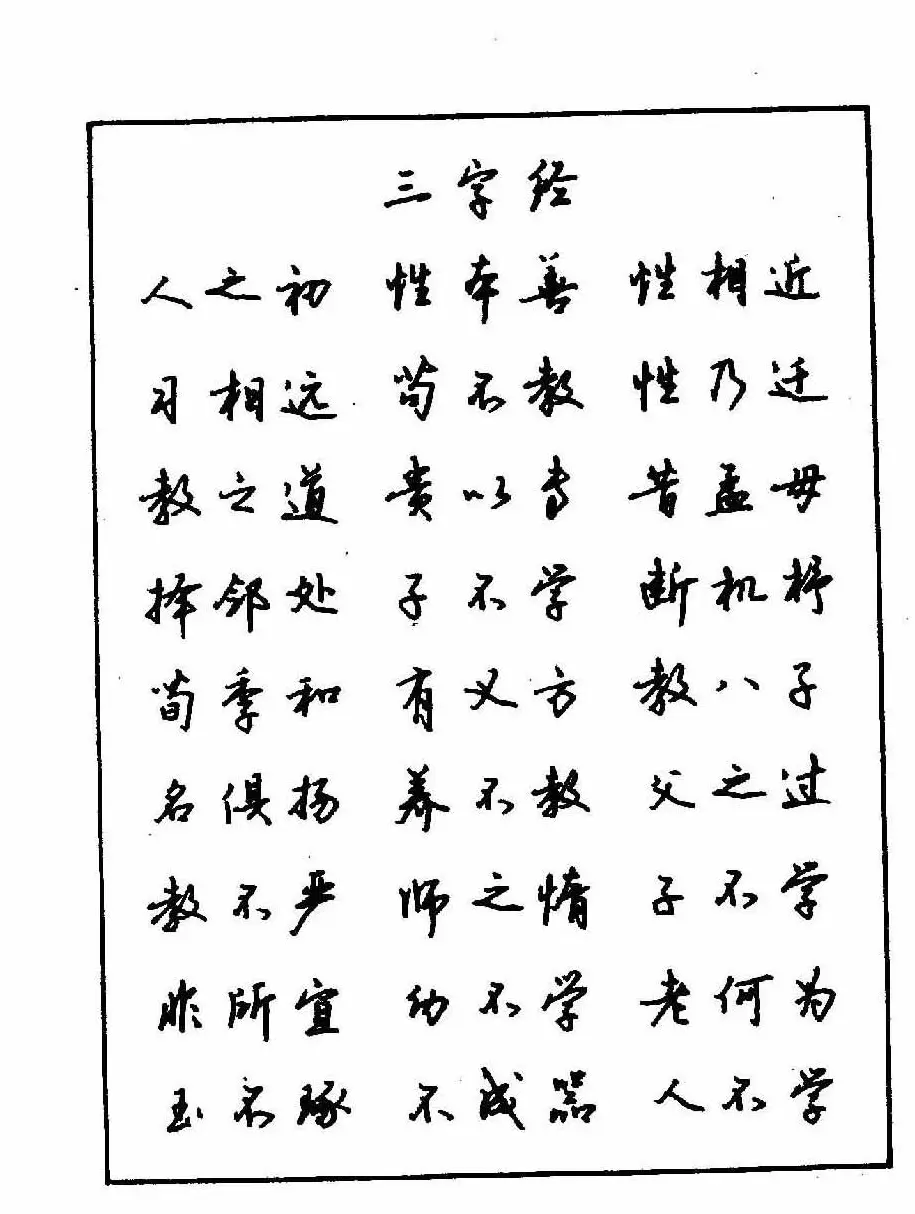 三字经
人之初 性本善 性相近
习相远 苟不教 性乃迁
教之道 贵以专 昔孟母
择邻处 子不学 断机杼
荀季和 有义方 教八子
名俱扬 养不教 父之过
教不严 师之惰 子不学
非所宜 幼不学 老何为
玉不琢 不成器 人不学